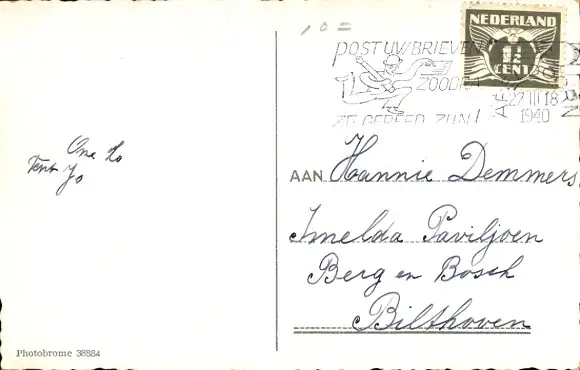 10 =
NEDERLAND
1½
CENT
POST UW BRIEVEN
ZOODRA
ZE GEREED ZIJN!
27 III 18
1940
AAN Hannie Demmers
Imelda Paviljoen
Berg en Bosch
Bilthoven
Tante Jo
Photobrome 38884